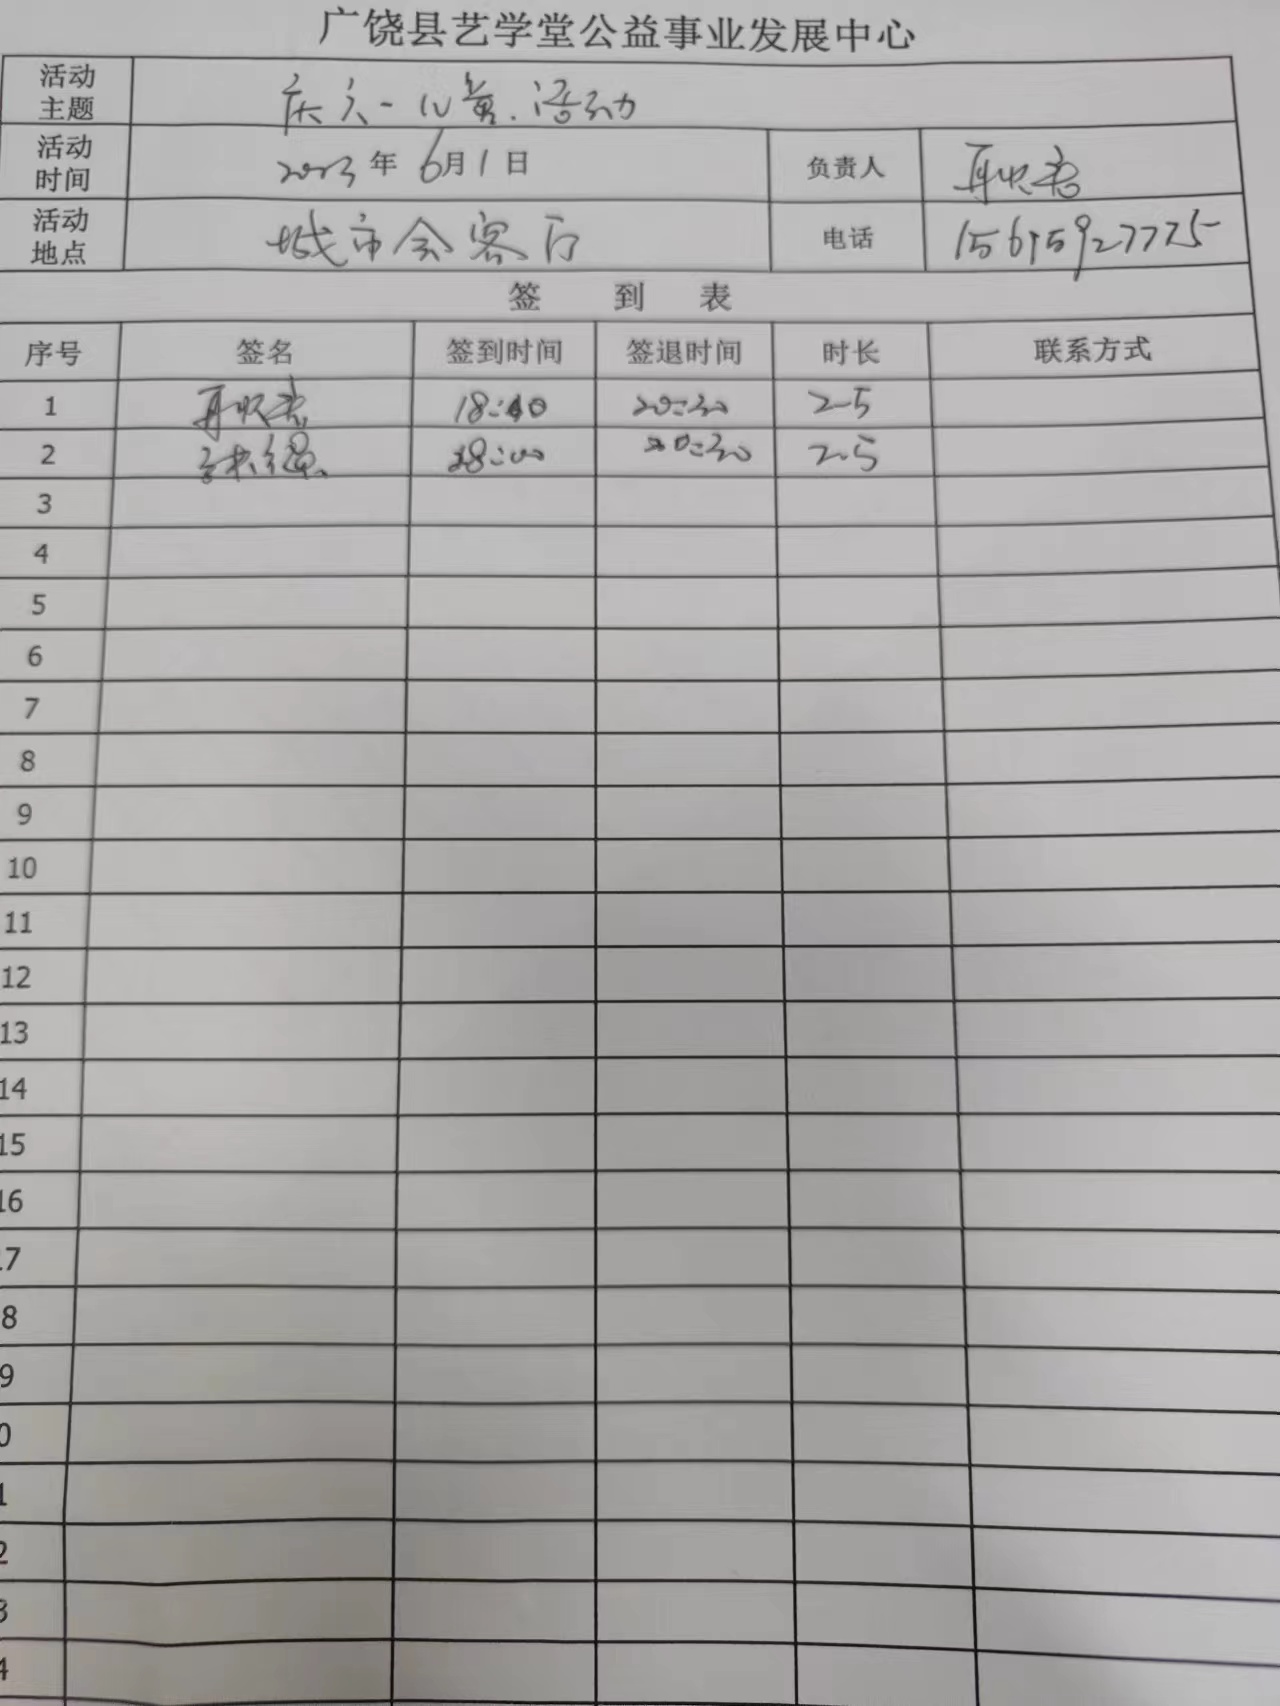 广饶县艺学堂公益事业发展中心
活动主题 庆六一儿黄.活动
活动时间 2023年6月1日 负责人
活动地点 城市会客厅 电话 15615927775
签 到 表
序号 签名 签到时间 签退时间 时长 联系方式
1 18:00 20:30 2.5
2 18:00 20:30 2.5
3
4
5
6
7
8
9
10
11
12
13
14
15
16
17
8
9
0
1
2
3
4